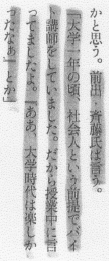 かと思う。前出・斉藤氏は言う。
「大学一年の頃、社会人という前提でバイ
ト講師をしていました。だから授業中に言
ってましたよ。『ああ、大学時代は楽しか
ったなぁ』とか」